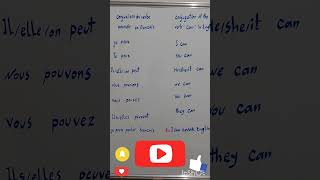 conjugation of the
verbe pouvoir en français
verb "can" in English
je peux
I can
Tu peux
You can
Il/elle/on peut
He/she/it can
nous pouvons
we can
vous pouvez
You can
Ils/elles peuvent
they can
je peux parler français
I can speak English
Il/elle/on peut
he/she/it can
Nous pouvons
we can
vous pouvez
can
they can